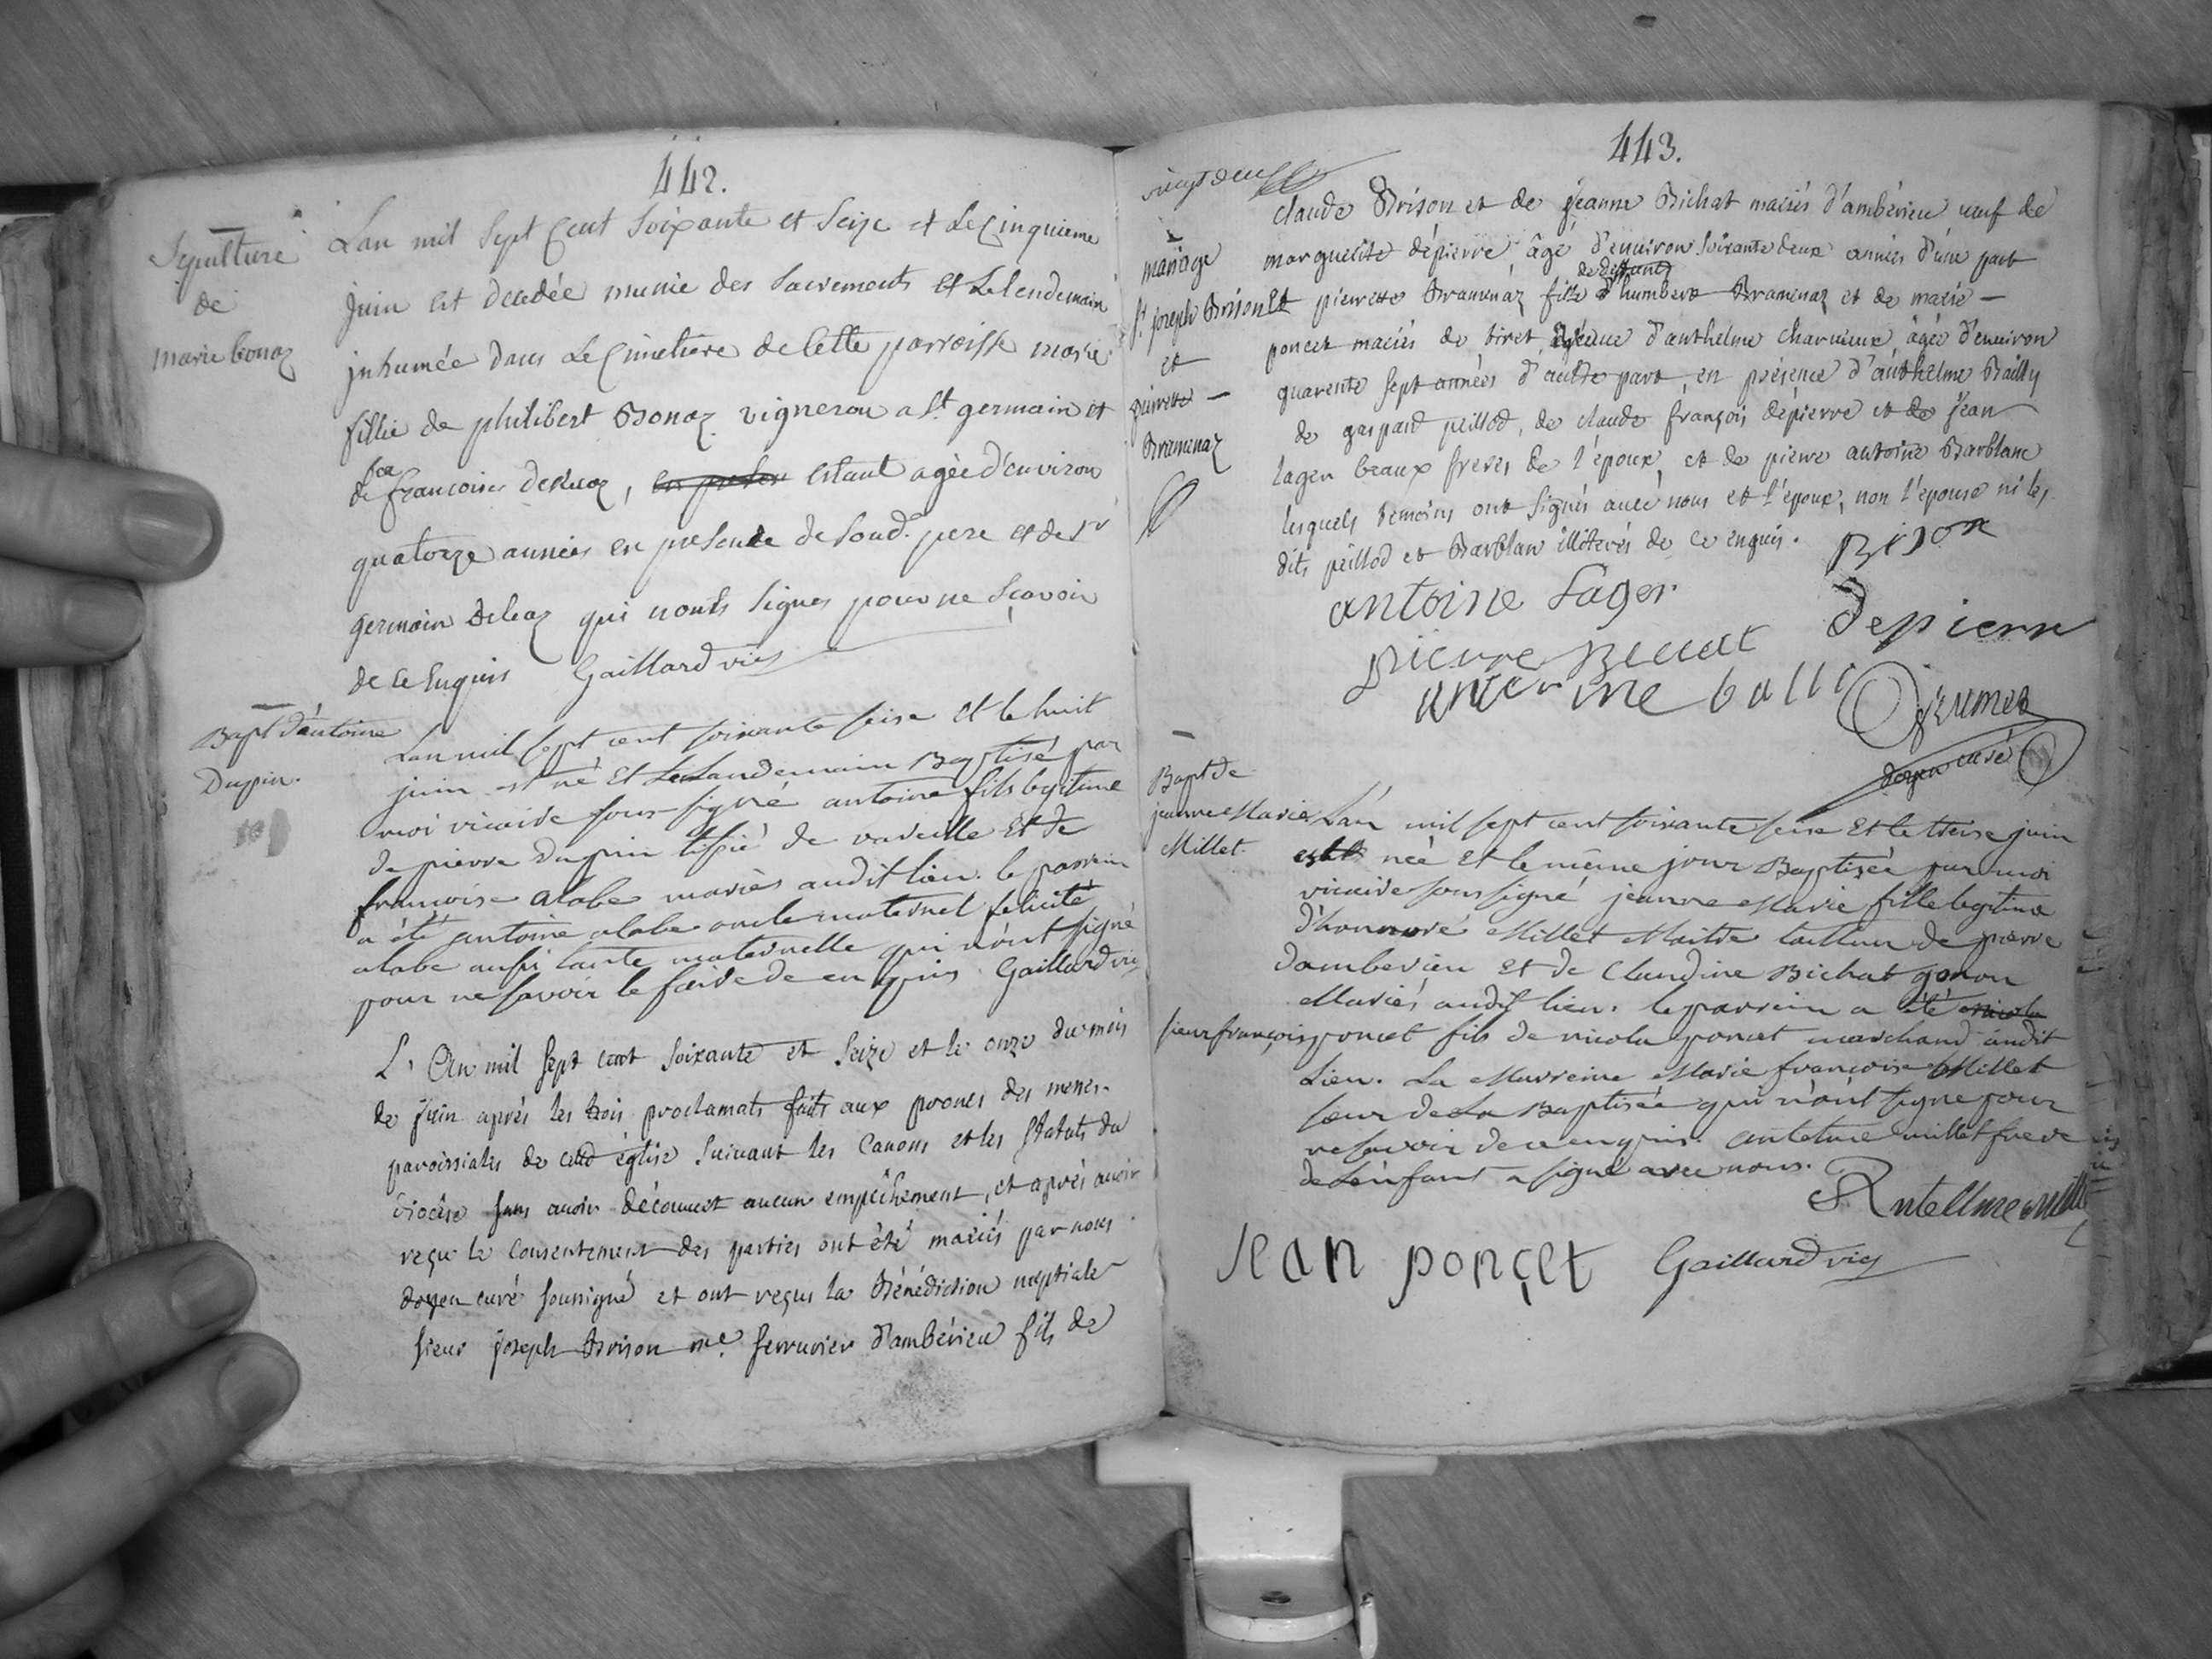 442.
Sepulture
de
marie bonaz
Lan mil sept Cent soixante et seize et le cinquieme
juin est decedée munie des sacrements et le lendemain
inhumée dans le cimetiere de cette parroisse marie
fillie de philibert Bonaz vigneron a St germain et
de francoise
quatorze années en presence de soud. pere et de Sr
germain qui nonts signes pour ne sçavoir
de ce enquis Gaillard vic
Bapt d'antoine
Dupin.
Lan mil sept cent soixante seise et le huit
juin est né et le landemain Baptisé par
moi vicaire soussigné antoine fils legitime
de pierre Dupin tissié de vareille et de
francoise alabe mariés audit lieu. le parrein
a été antoine alabe oncle maternel felicité
alabe aussi tante maternelle qui n'ont signé
pour ne savoir le faire de en quis Gaillard vic
L'An mil sept cent soixante et seize et le onze du mois
de juin après les trois proclamats faits aux prones des messes
paroissiales de église suivant les canons et les statuts du
diocèse sans avoir découvert aucun empêchement, et après avoir
reçu le consentement des parties ont été mariés par nous
doyen curé soussigné et ont reçus la Bénédiction nuptiale
sieur joseph Brison me. serrurier d'ambérieu fils de
443.
vingt deux
mariage
Sr joseph Brison
et
pierrette
Bramenaz
claude Brison et de jeanne Bichat mariés d'ambérieu veuf de
marguerite dépierre âgé d'environ soixante deux années d'une part
Et pierrette Bramenaz fille d'humbert Bramenaz et de marie
poncet mariés de tiret, d'anthelme charvieux âgée d'environ
quarente sept années d'autre part, en présence d'anthelme Bailly
de gaspard peillod, de claude françois dépierre et de jean
lager beaux freres de l'époux, et de pierre antoine Barblanc
lesquels témoins ont signés avec nous et l'époux, non l'épouse ni les
dits peillod et Barblan illiterés de ce enquis.
Brison
antoine Lager
depierre
pierre
doyen curé
Bapt de
jeanne Marie
Millet.
L'an mil sept cent soixante seise et le treise juin
est née et le même jour Baptisée par moi
vicaire soussigné jeanne Marie fille legitime
d'honnoré Millet Maitre tailleur de pierre
dambérieu et de Claudine Bichat gonon
Mariés audit lieu. le parrein a été
sieur françois poncet fils de nicola poncet marchand audit
Lieu. La Marreine Marie francoise Millet
sœur de La Baptisée qui n'ont signe pour
ne savoir de ce enquis. antelme millet frere
de L'enfant a signé avec nous.
Antellme mille
Jean ponçet Gaillard vic